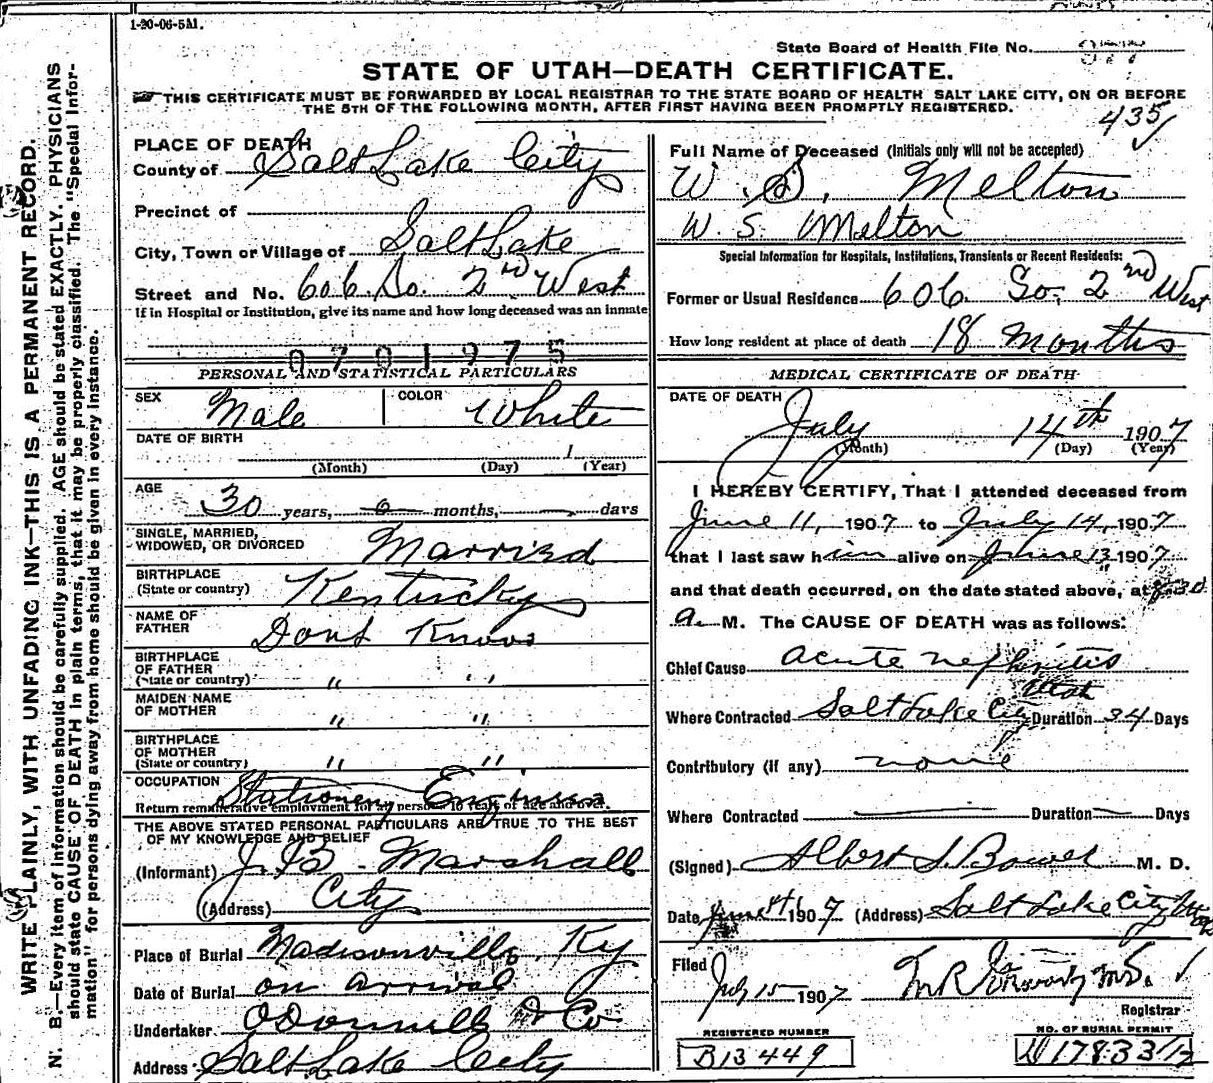 1-20-06-5M.
State Board of Health File No.
STATE OF UTAH—DEATH CERTIFICATE.
THIS CERTIFICATE MUST BE FORWARDED BY LOCAL REGISTRAR TO THE STATE BOARD OF HEALTH SALT LAKE CITY, ON OR BEFORE
THE 5TH OF THE FOLLOWING MONTH, AFTER FIRST HAVING BEEN PROMPTLY REGISTERED.
435
WRITE PLAINLY, WITH UNFADING INK—THIS IS A PERMANENT RECORD.
N. B.—Every item of information should be carefully supplied. AGE should be stated EXACTLY. PHYSICIANS
should state CAUSE OF DEATH in plain terms, that it may be properly classified. The "Special Infor-
mation" for persons dying away from home should be given in every instance.
PLACE OF DEATH
County of Salt Lake City
Precinct of
City, Town or Village of Salt Lake
Street and No. 606 So. 2nd West
If in Hospital or Institution, give its name and how long deceased was an inmate
0701975
PERSONAL AND STATISTICAL PARTICULARS
SEX Male COLOR White
DATE OF BIRTH
1
(Month) (Day) (Year)
AGE
30 years, 0 months, — days
SINGLE, MARRIED,
WIDOWED, OR DIVORCED Married
BIRTHPLACE
(State or country) Kentucky
NAME OF
FATHER Dont Know
BIRTHPLACE
OF FATHER
(State or country) " "
MAIDEN NAME
OF MOTHER " "
BIRTHPLACE
OF MOTHER
(State or country) " "
OCCUPATION Stationery Engineer
Return remunerative employment for all persons 10 years of age and over.
THE ABOVE STATED PERSONAL PARTICULARS ARE TRUE TO THE BEST
OF MY KNOWLEDGE AND BELIEF
(Informant) J. B. Marshall
(Address) City
Place of Burial Madisonville, Ky
Date of Burial on arrival
Undertaker O'Donnell & Co
Address Salt Lake City
Full Name of Deceased (Initials only will not be accepted)
W. S. Melton
W. S. Melton
Special Information for Hospitals, Institutions, Transients or Recent Residents:
Former or Usual Residence 606 So. 2nd West
How long resident at place of death 18 months
MEDICAL CERTIFICATE OF DEATH
DATE OF DEATH
July 14th 1907
(Month) (Day) (Year)
I HEREBY CERTIFY, That I attended deceased from
June 11, 1907 to July 14, 1907
that I last saw him alive on June 13 1907
and that death occurred, on the date stated above, at 8-30
a. M. The CAUSE OF DEATH was as follows:
Chief Cause acute nephritis
Where Contracted Salt Lake City Utah Duration 34 Days
Contributory (if any) none
Where Contracted — Duration — Days
(Signed) Albert S. Bower M. D.
Date 1907 (Address) Salt Lake City Utah
Filed
July 15 1907
Registrar
REGISTERED NUMBER
B13449
NO. OF BURIAL PERMIT